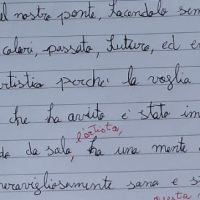 nostro ponte, facendolo sem
calori, passato, futuro, ed e
rtistia perchè la voglia
che ha avuto è stato im
da sola, ha una mente
meravigliosamente sana e s